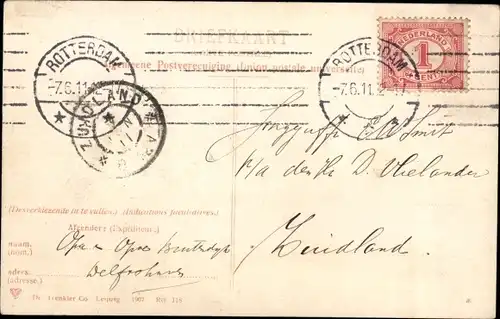 BRIEFKAART
Algemeene Postvereeniging (Union postale universelle)
NEDERLAND
1
CENT
ROTTERDAM
-7.6.11
ROTTERDAM
-7.6.11
ZUIDLAND
Jongejuffr. Smit
p/a den Hr D. Vlielander
Zuidland
(Desverkiezende in te vullen.) (Indications facultatives.)
Afzender: (Expéditeur:)
naam: Opa en
(nom.) Delfshaven
adres:
(adresse.)
Th. Trenkler Co. Leipzig 1907 Rtt 118